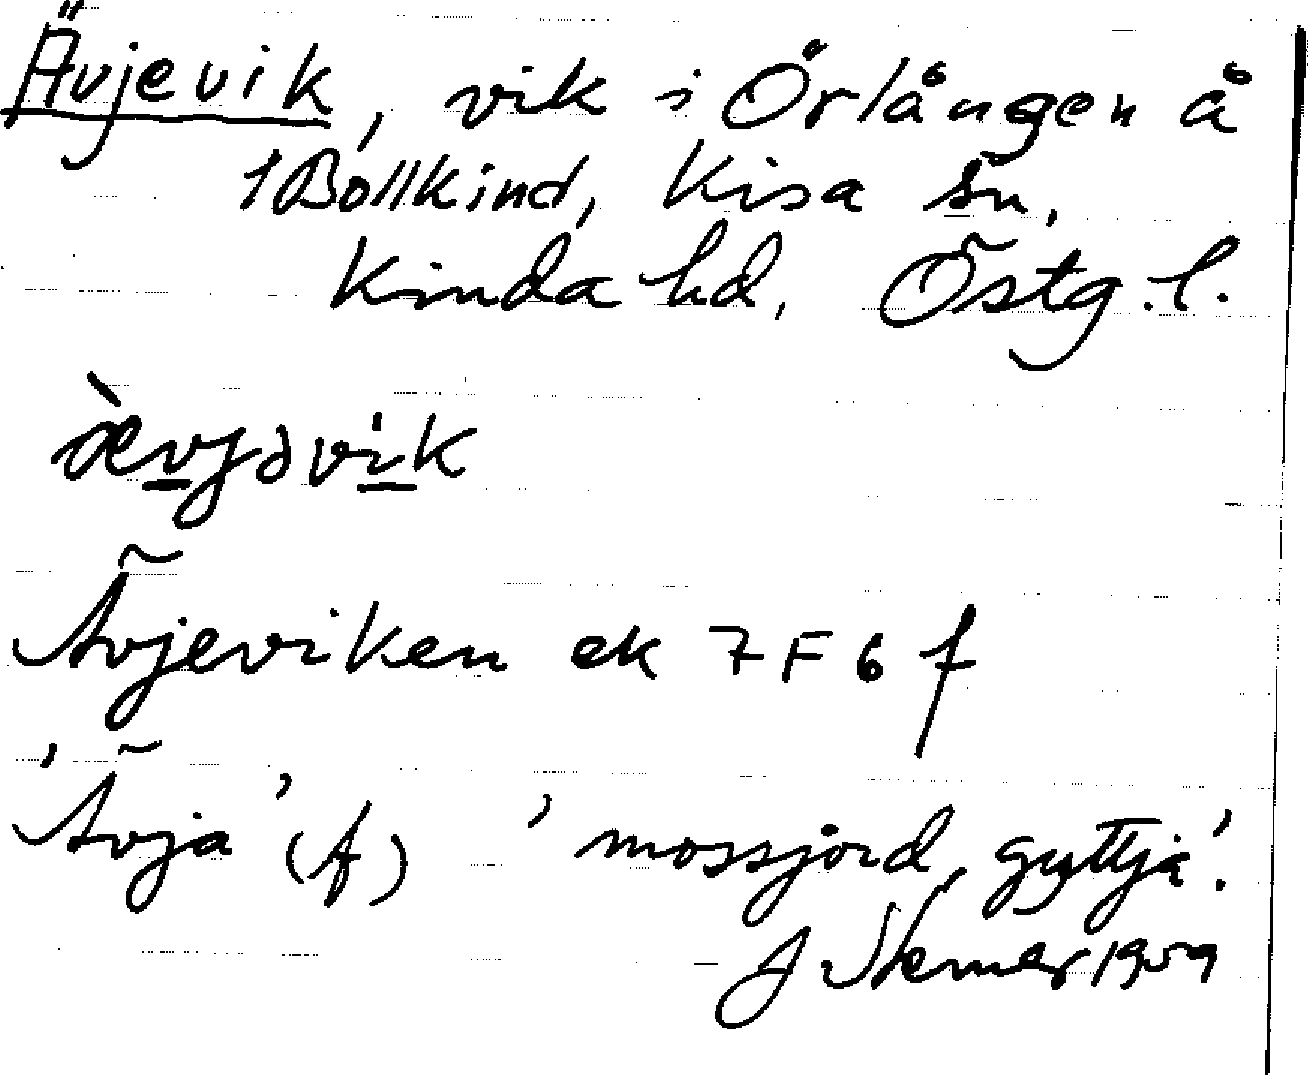 Ävjevik, vik i Örlången å
1 Bollkind, Kisa sn,
Kinda hd, Östg.l.
ävjəvik
Ävjeviken ek 7F6f
'Ävja' (f) 'mossjord, gyttja'.
1959